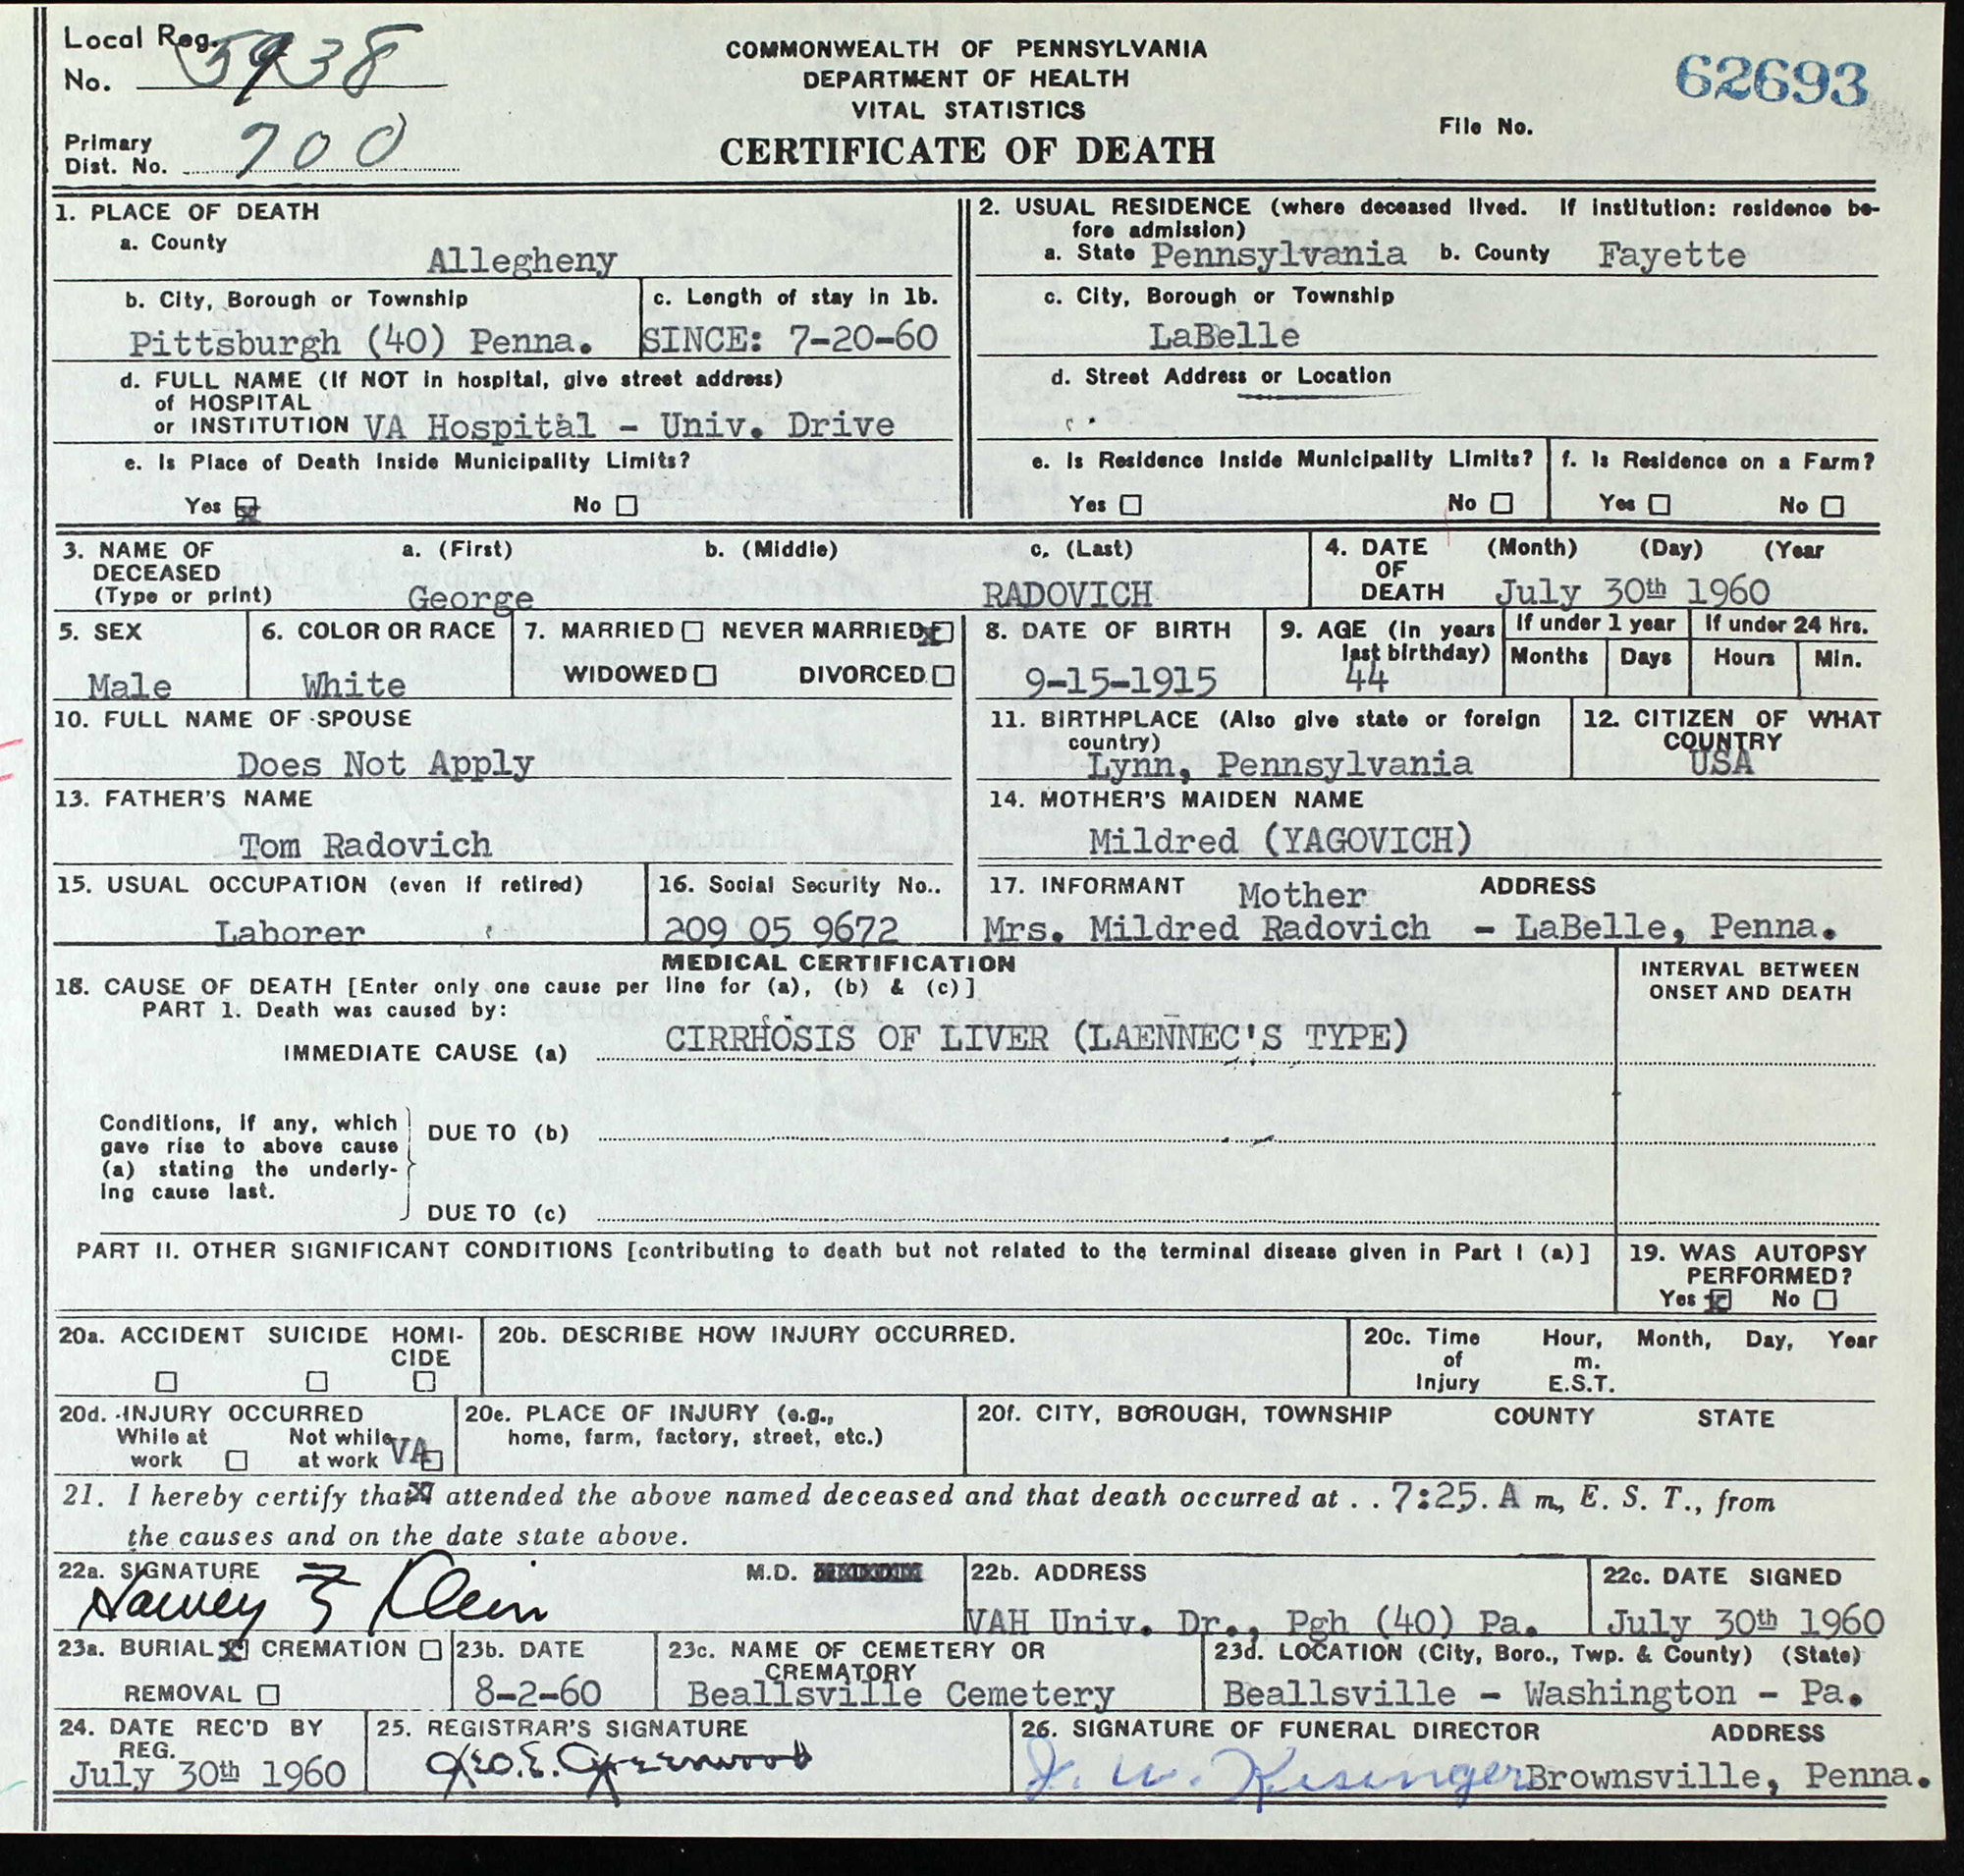 Local Reg. No. 5938
COMMONWEALTH OF PENNSYLVANIA
DEPARTMENT OF HEALTH
VITAL STATISTICS
CERTIFICATE OF DEATH
62693
File No.
Primary Dist. No. 700
1. PLACE OF DEATH
a. County
Allegheny
b. City, Borough or Township
Pittsburgh (40) Penna.
c. Length of stay in 1b.
SINCE: 7-20-60
d. FULL NAME (If NOT in hospital, give street address)
of HOSPITAL
or INSTITUTION VA Hospital - Univ. Drive
e. Is Place of Death Inside Municipality Limits?
Yes No
2. USUAL RESIDENCE (where deceased lived. If institution: residence be-
fore admission)
a. State Pennsylvania b. County Fayette
c. City, Borough or Township
LaBelle
d. Street Address or Location
e. Is Residence Inside Municipality Limits?
Yes No
f. Is Residence on a Farm?
Yes No
3. NAME OF
DECEASED
(Type or print)
a. (First)
George
b. (Middle)
c. (Last)
RADOVICH
4. DATE
OF
DEATH
(Month) (Day) (Year
July 30th 1960
5. SEX
Male
6. COLOR OR RACE
White
7. MARRIED NEVER MARRIED
WIDOWED DIVORCED
8. DATE OF BIRTH
9-15-1915
9. AGE (in years
last birthday)
44
If under 1 year
Months Days
If under 24 Hrs.
Hours Min.
10. FULL NAME OF SPOUSE
Does Not Apply
11. BIRTHPLACE (Also give state or foreign
country)
Lynn, Pennsylvania
12. CITIZEN OF WHAT
COUNTRY
USA
13. FATHER'S NAME
Tom Radovich
14. MOTHER'S MAIDEN NAME
Mildred (YAGOVICH)
15. USUAL OCCUPATION (even if retired)
Laborer
16. Social Security No..
209 05 9672
17. INFORMANT Mother ADDRESS
Mrs. Mildred Radovich - LaBelle, Penna.
MEDICAL CERTIFICATION
18. CAUSE OF DEATH [Enter only one cause per line for (a), (b) & (c)]
PART 1. Death was caused by:
IMMEDIATE CAUSE (a) CIRRHOSIS OF LIVER (LAENNEC'S TYPE)
INTERVAL BETWEEN
ONSET AND DEATH
Conditions, if any, which
gave rise to above cause
(a) stating the underly-
ing cause last.
DUE TO (b)
DUE TO (c)
PART II. OTHER SIGNIFICANT CONDITIONS [contributing to death but not related to the terminal disease given in Part I (a)]
19. WAS AUTOPSY
PERFORMED?
Yes No
20a. ACCIDENT SUICIDE HOMI-
CIDE
20b. DESCRIBE HOW INJURY OCCURRED.
20c. Time
of
Injury
Hour, Month, Day, Year
m.
E.S.T.
20d. INJURY OCCURRED
While at Not while
work at work VA
20e. PLACE OF INJURY (e.g.,
home, farm, factory, street, etc.)
20f. CITY, BOROUGH, TOWNSHIP COUNTY STATE
21. I hereby certify that attended the above named deceased and that death occurred at . . 7:25. A m, E. S. T., from
the causes and on the date state above.
22a. SIGNATURE
Harvey Klein
M.D.
22b. ADDRESS
VAH Univ. Dr., Pgh (40) Pa.
22c. DATE SIGNED
July 30th 1960
23a. BURIAL CREMATION
REMOVAL
23b. DATE
8-2-60
23c. NAME OF CEMETERY OR
CREMATORY
Beallsville Cemetery
23d. LOCATION (City, Boro., Twp. & County) (State)
Beallsville - Washington - Pa.
24. DATE REC'D BY
REG.
July 30th 1960
25. REGISTRAR'S SIGNATURE
Geo. E. Greenwood
26. SIGNATURE OF FUNERAL DIRECTOR ADDRESS
J. W. Kisinger Brownsville, Penna.